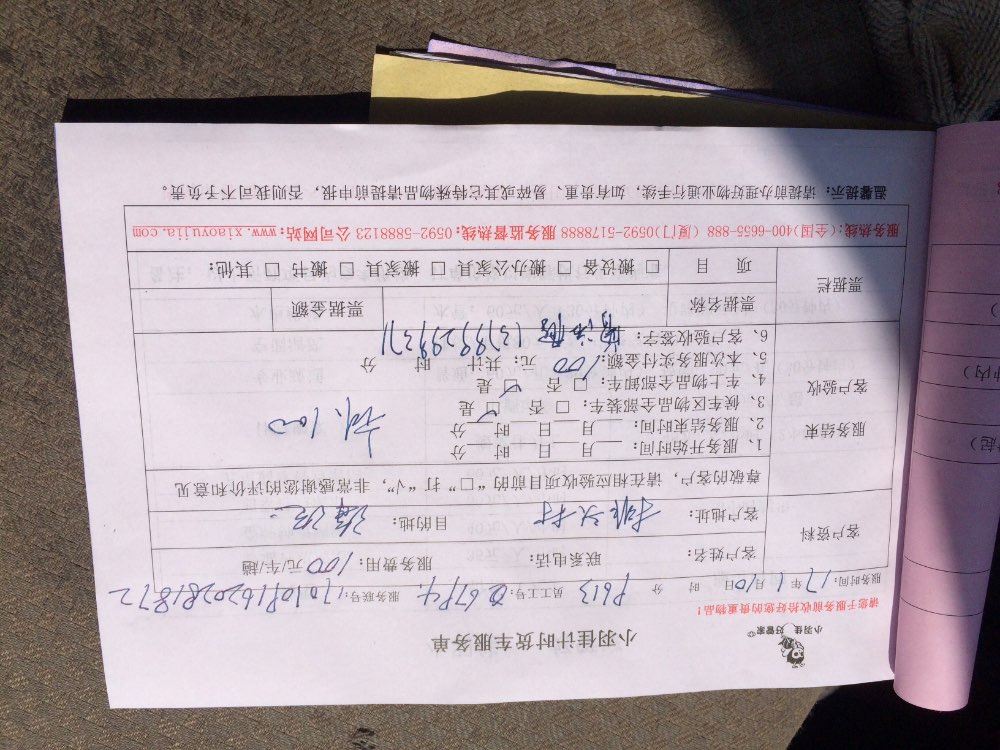 小羽佳 好管家
小羽佳计时货车服务单
请您于服务前收拾好您的贵重物品！
服务时间：17年1月10日 时 分 P613 员工工号：0679 服务联号：17010916202818 72
客户资料
客户姓名： 联系电话： 服务费用：100元/车/趟
客户地址： 目的地：
尊敬的客户，请在相应验收项目前的“□”打“√”，非常感谢您的评价和意见
服务结束
客户验收
1、服务开始时间： 月 日 时 分
2、服务结束时间： 月 日 时 分
3、候车区物品全部装车：□ 否 □ 是
4、车上物品全部卸车：□ 否 □ 是
5、本次服务支付金额：100 元；共计 时 分
6、客户验收签字：13799299371
票据栏
票据名称 票据金额
项 目 □ 搬设备 □ 搬办公家具 □ 搬家具 □ 搬书 □ 其他：
服务热线：(全国)400-6655-888 (厦门)0592-5178888 服务监督热线：0592-5888123 公司网站：www.xiaoyujia.com
温馨提示：请提前办理好物业通行手续，如有贵重、易碎或其它特殊物品请提前申报，否则我司不予负责。